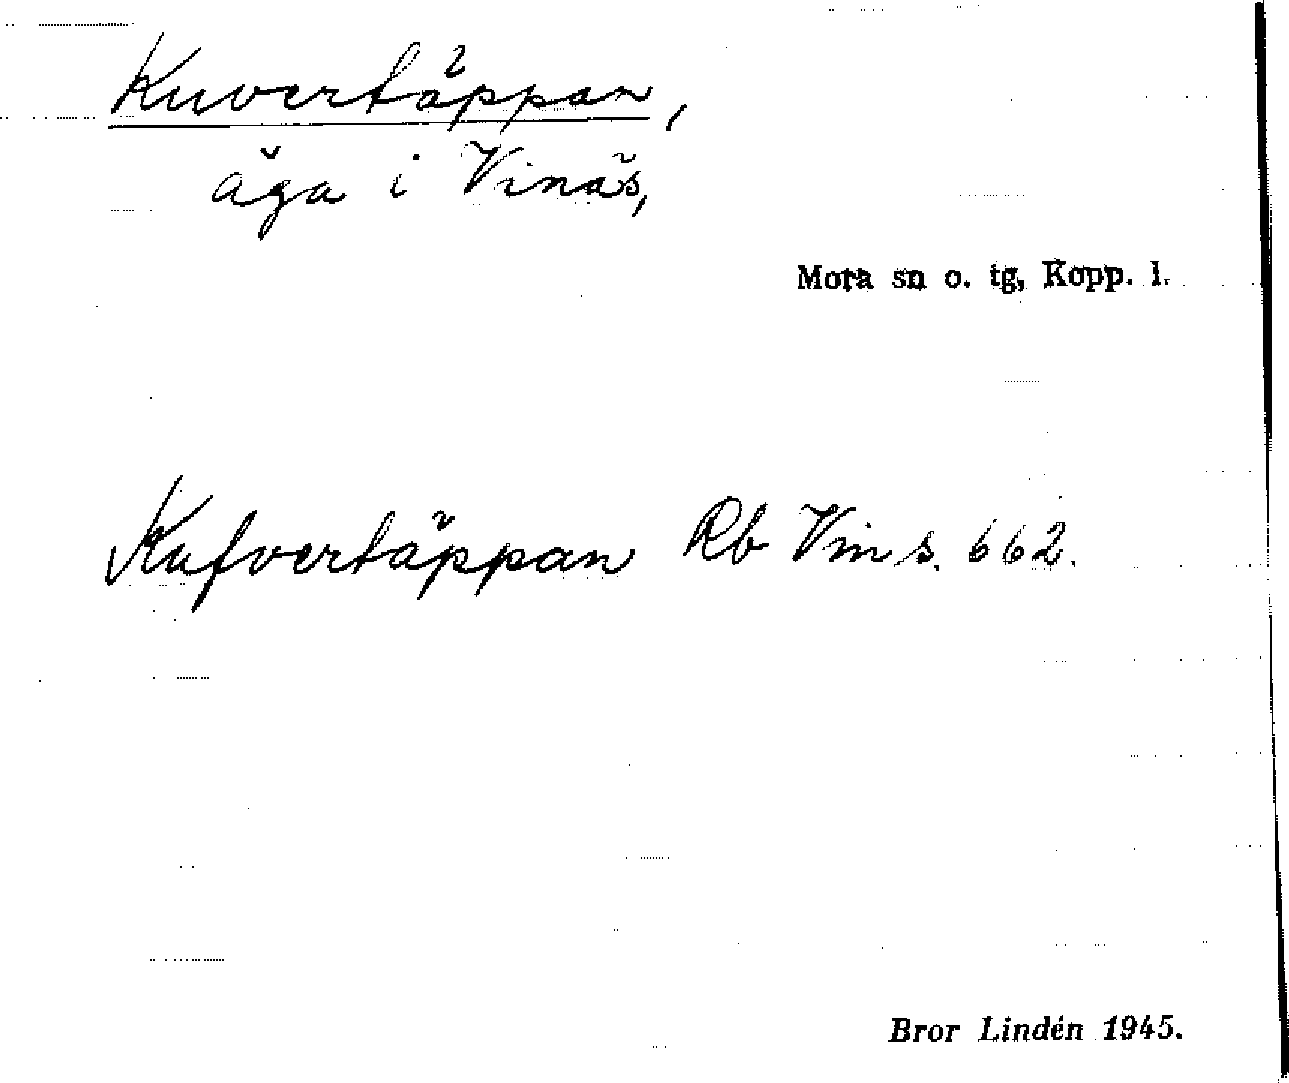 Kuvertäppan,
äga i Vinäs,
Mora sn o. tg, Kopp. l.
Kufvertäppan Rb Vin s. 662.
Bror Lindén 1945.